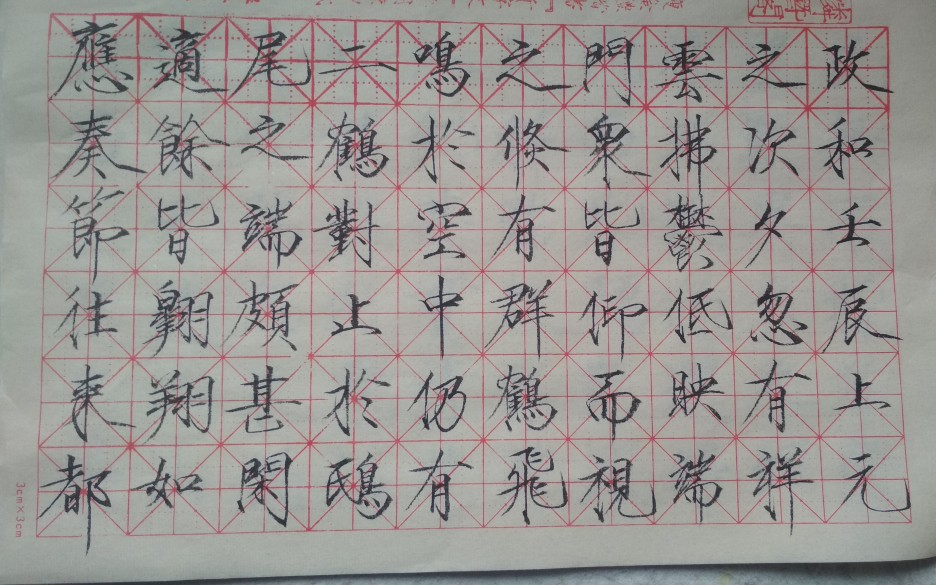 政和壬辰上元
之次夕忽有祥
雲拂鬱低映端
門衆皆仰而視
之倐有群鶴飛
鳴於空中仍有
二鶴對止於鴟
尾之端頗甚閑
適餘皆翺翔如
應奏節往来都
3cm×3cm